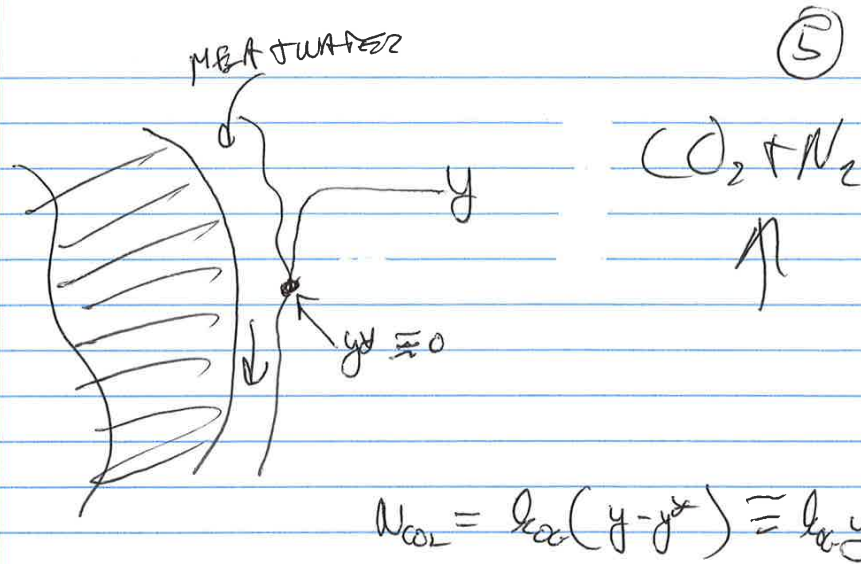 5
MEA + WATER
CO₂ + N₂
y
y* ≅ 0
N_CO₂ = k_OG (y - y*) ≅ k_OG y